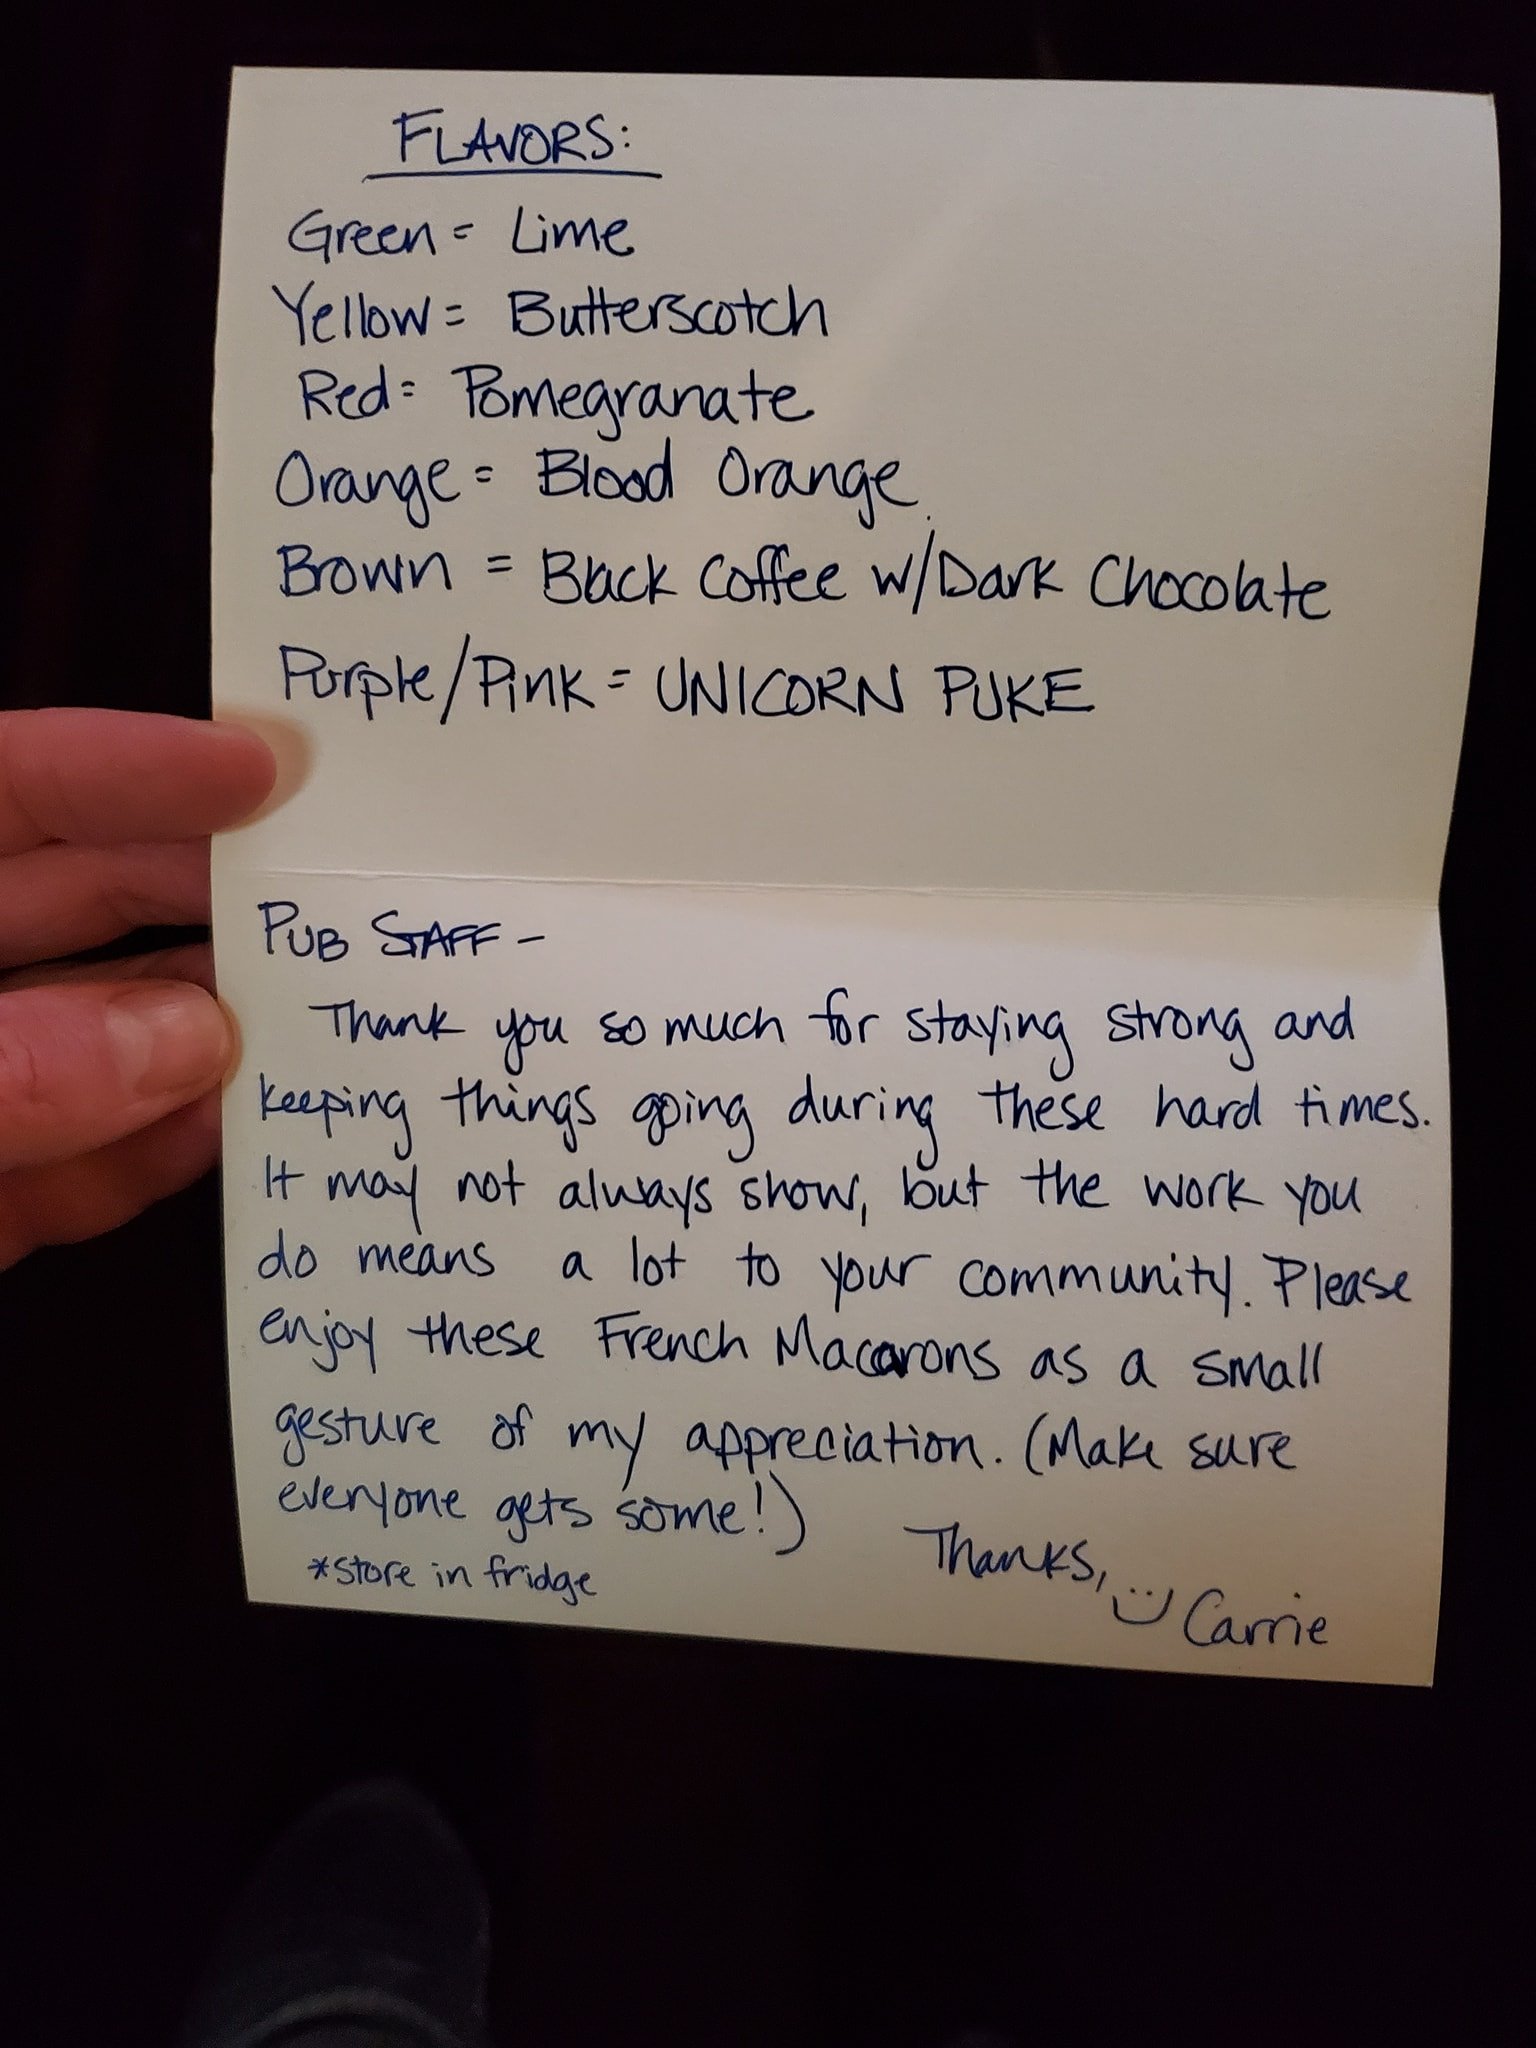 FLAVORS:
Green = Lime
Yellow = Butterscotch
Red = Pomegranate
Orange = Blood Orange
Brown = Black Coffee w/Dark Chocolate
Purple/Pink = UNICORN PUKE
PUB STAFF -
Thank you so much for staying strong and
keeping things going during these hard times.
It may not always show, but the work you
do means a lot to your community. Please
enjoy these French Macarons as a small
gesture of my appreciation. (Make sure
everyone gets some!)
*store in fridge
Thanks,
Carrie